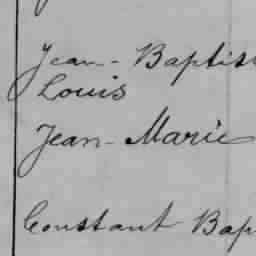 Jean-Baptis
Louis
Jean-Marie
Constant Bap